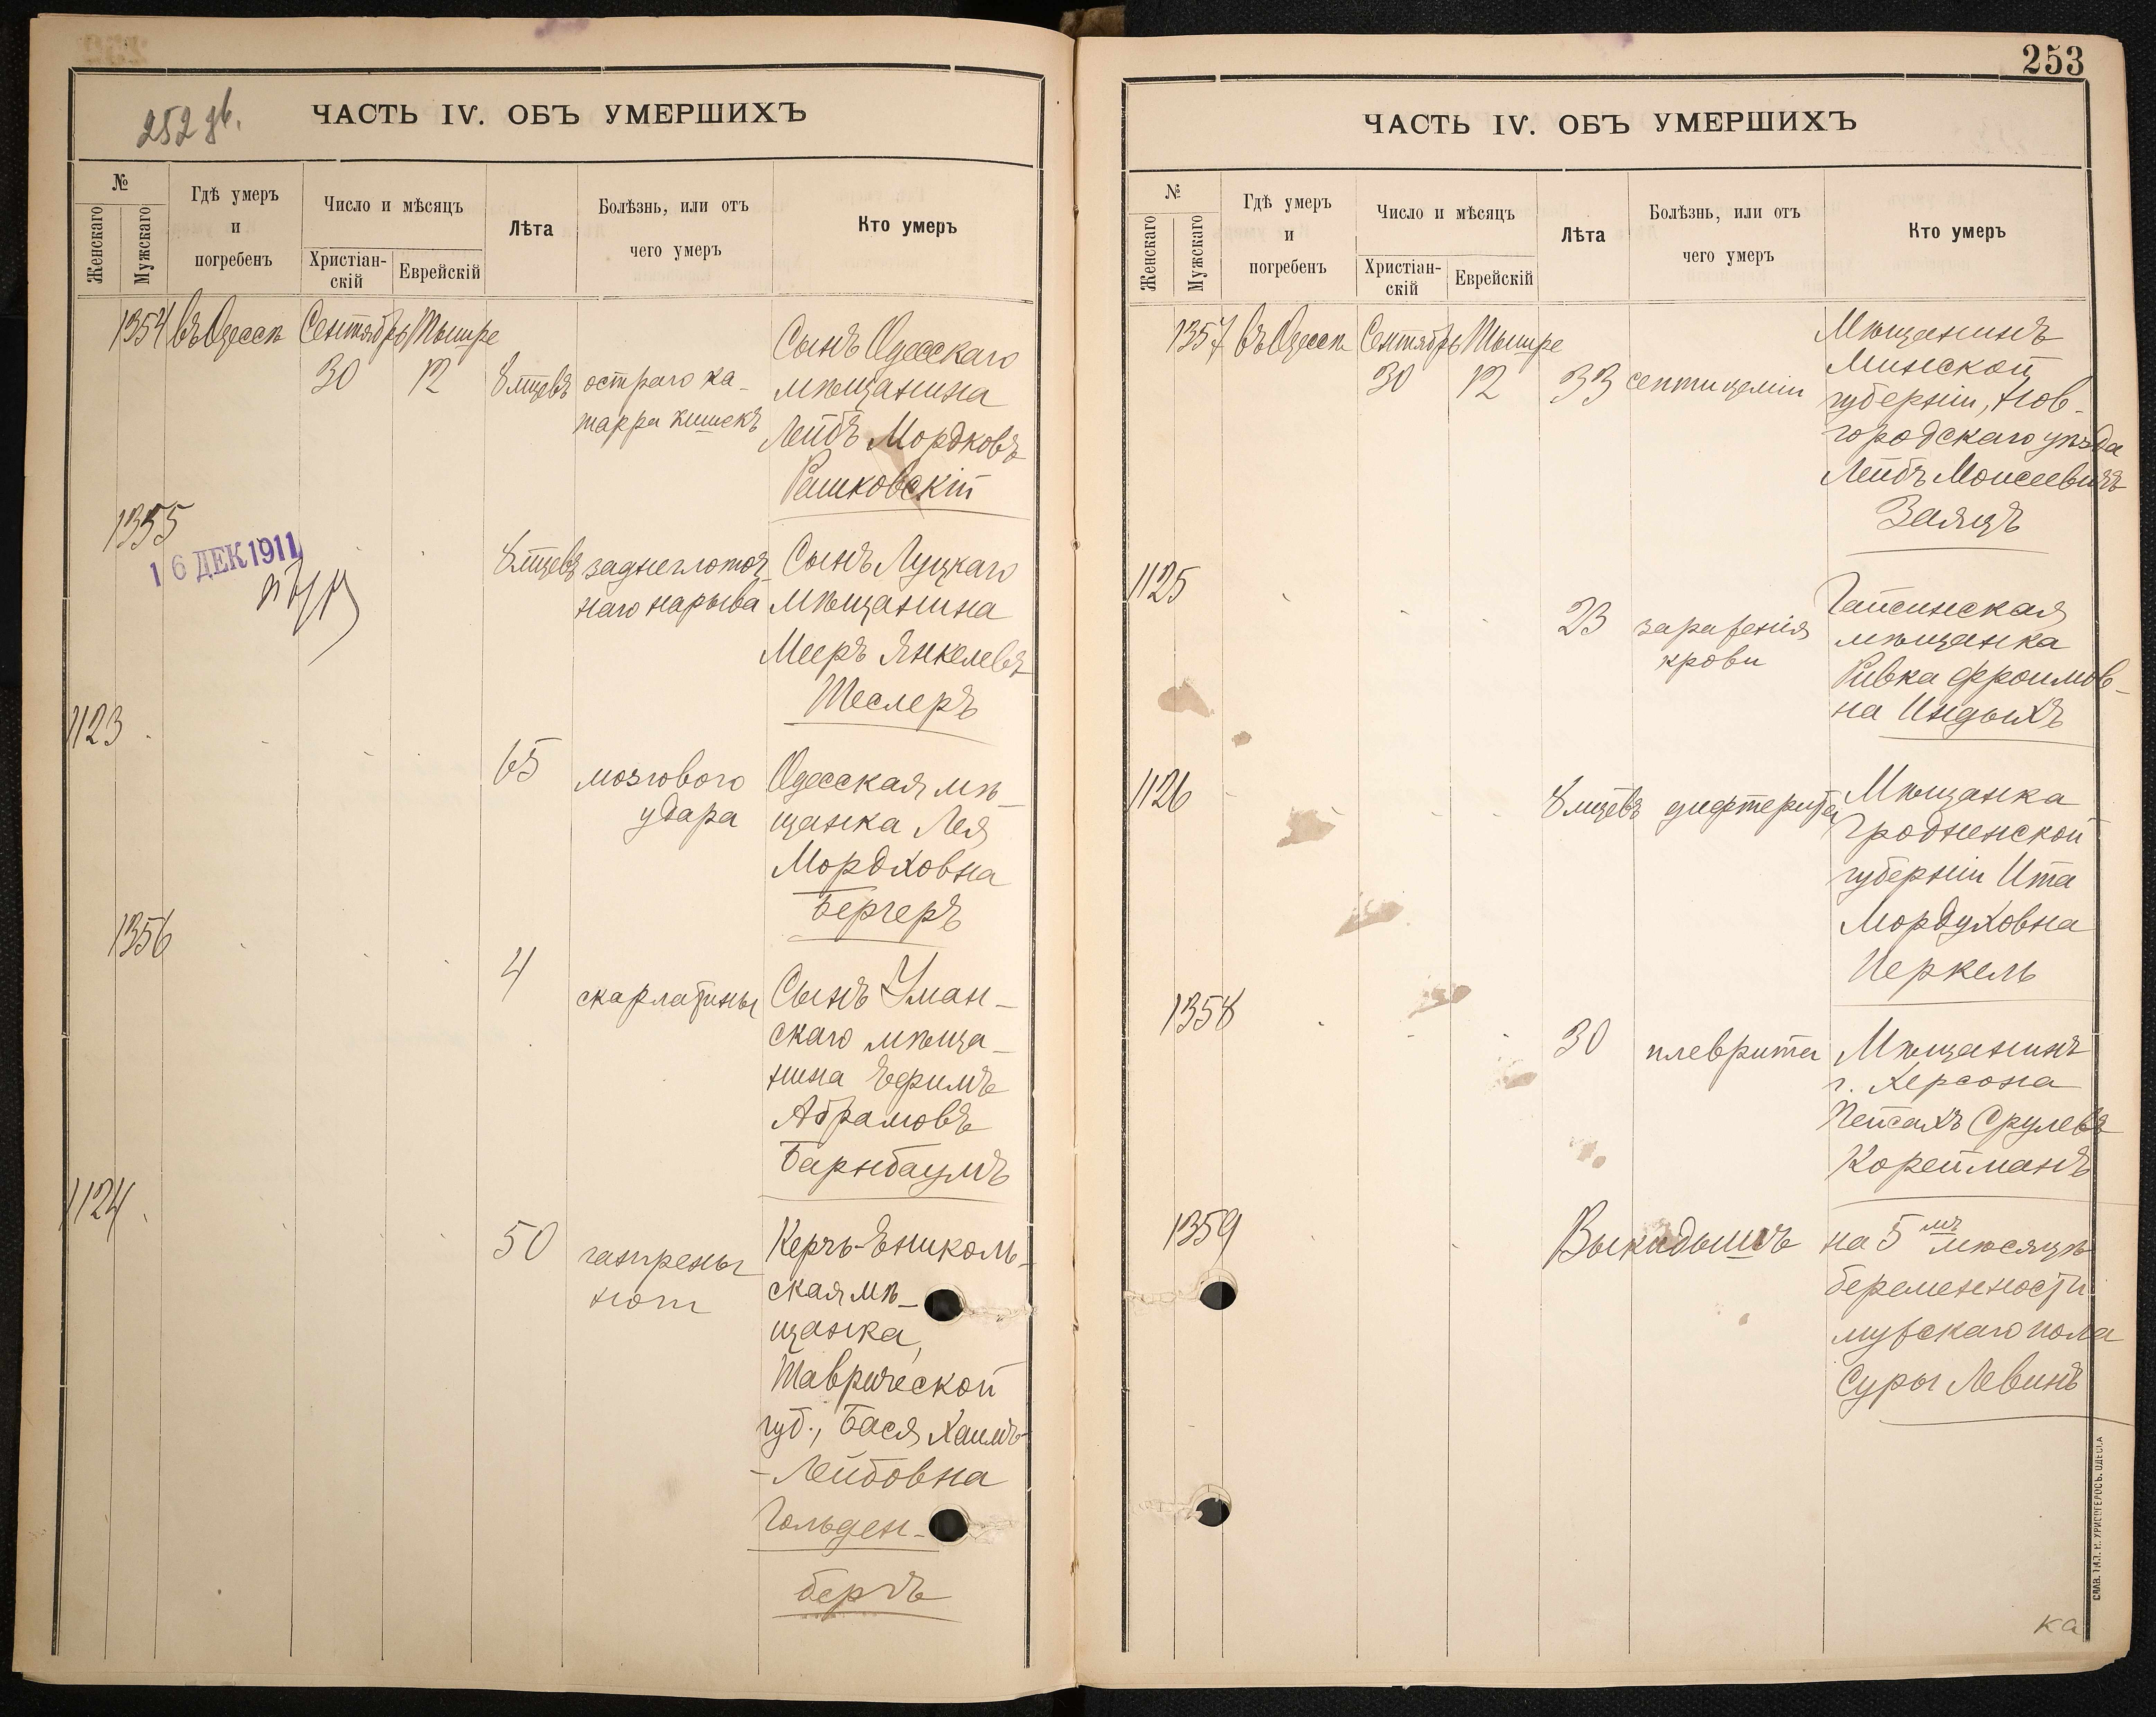 252 об.
ЧАСТЬ IV. ОБЪ УМЕРШИХЪ
№
Женскаго
Мужскаго
Гдѣ умеръ
и
погребенъ
Число и мѣсяцъ
Христіан-
скій
Еврейскій
Лѣта
Болѣзнь, или отъ
чего умеръ
Кто умеръ
1354 въ Одессѣ Сентябрь Тышре
30 12 8 мцевъ остраго ка-
тарра кишекъ
Сынъ Одесскаго
мѣщанина
Лейбъ Мордковъ
Рашковскій
1355
16 ДЕК 1911
8 мцевъ заднеглоточ-
наго нарыва
Сынъ Луцкаго
мѣщанина
Мееръ Янкелевъ
Теслеръ
1123
65 мозгового
удара
Одесская мѣ-
щанка Лея
Мордховна
Бергеръ
1356
4 скарлатины
Сынъ Уман-
скаго мѣща-
нина Ефримъ
Абрамовъ
Барнбаумъ
1124
50 гангрены
ноги
Керчь-Ениколь-
ская мѣ-
щанка,
Таврической
губ., Бася Хаимъ-
-Лейбовна
Гольден-
бергъ
253
ЧАСТЬ IV. ОБЪ УМЕРШИХЪ
№
Женскаго
Мужскаго
Гдѣ умеръ
и
погребенъ
Число и мѣсяцъ
Христіан-
скій
Еврейскій
Лѣта
Болѣзнь, или отъ
чего умеръ
Кто умеръ
1357 въ Одессѣ Сентябрь Тышре
30 12 33 септицеміи
Мѣщанинъ
Минской
губерніи, Нов-
городскаго уѣзда
Лейбъ Моисеевичъ
Заяцъ
1125
23 зараженія
крови
Гайсинская
мѣщанка
Ривка Фроимов-
на Индыхъ
1126
8 мцевъ дифтерита
Мѣщанка
Гродненской
губерніи Ита
Мордуховна
Перкель
1358
30 плеврита
Мѣщанинъ
г. Херсона
Пейсахъ Срулевъ
Корейманъ
1359
Выкидышъ на 5 мъ мѣсяцѣ
беременности
мужскаго пола
Суры Левинъ
СЛАВ. ТИП. Н. ХРИСОГЕЛОСЪ. ОДЕССА
ка